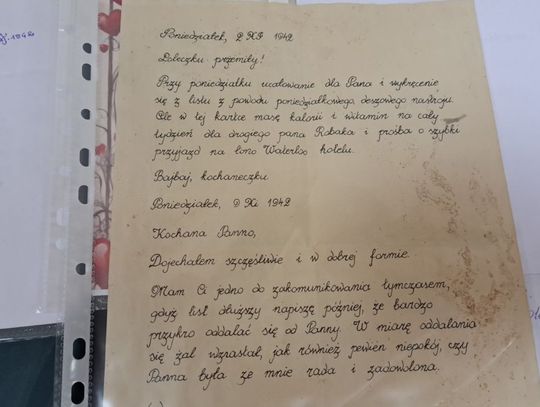 Poniedziałek, 2 XI 1942
Loleczku przemiły!
Przy poniedziałku ucałowanie dla Pana i wykręcenie
się z listu z powodu poniedziałkowego, deszowego nastroju.
Ale w tej kartce masę kalorii i witamin na cały
tydzień dla drogiego pana Robaka i prośba o szybki
przyjazd na łono Waterloo hotelu.
Bajbaj, kochaneczku.
Poniedziałek, 9 XI 1942
Kochana Panno,
Dojechałem szczęśliwie i w dobrej formie.
Mam Ci jedno do zakomunikowania tymczasem,
gdyż list dłuższy napiszę później, że bardzo
przykro oddalać się od Panny. W miarę oddalania
się żal wzrastał, jak również pewien niepokój, czy
Panna była ze mnie rada i zadowolona.
1942